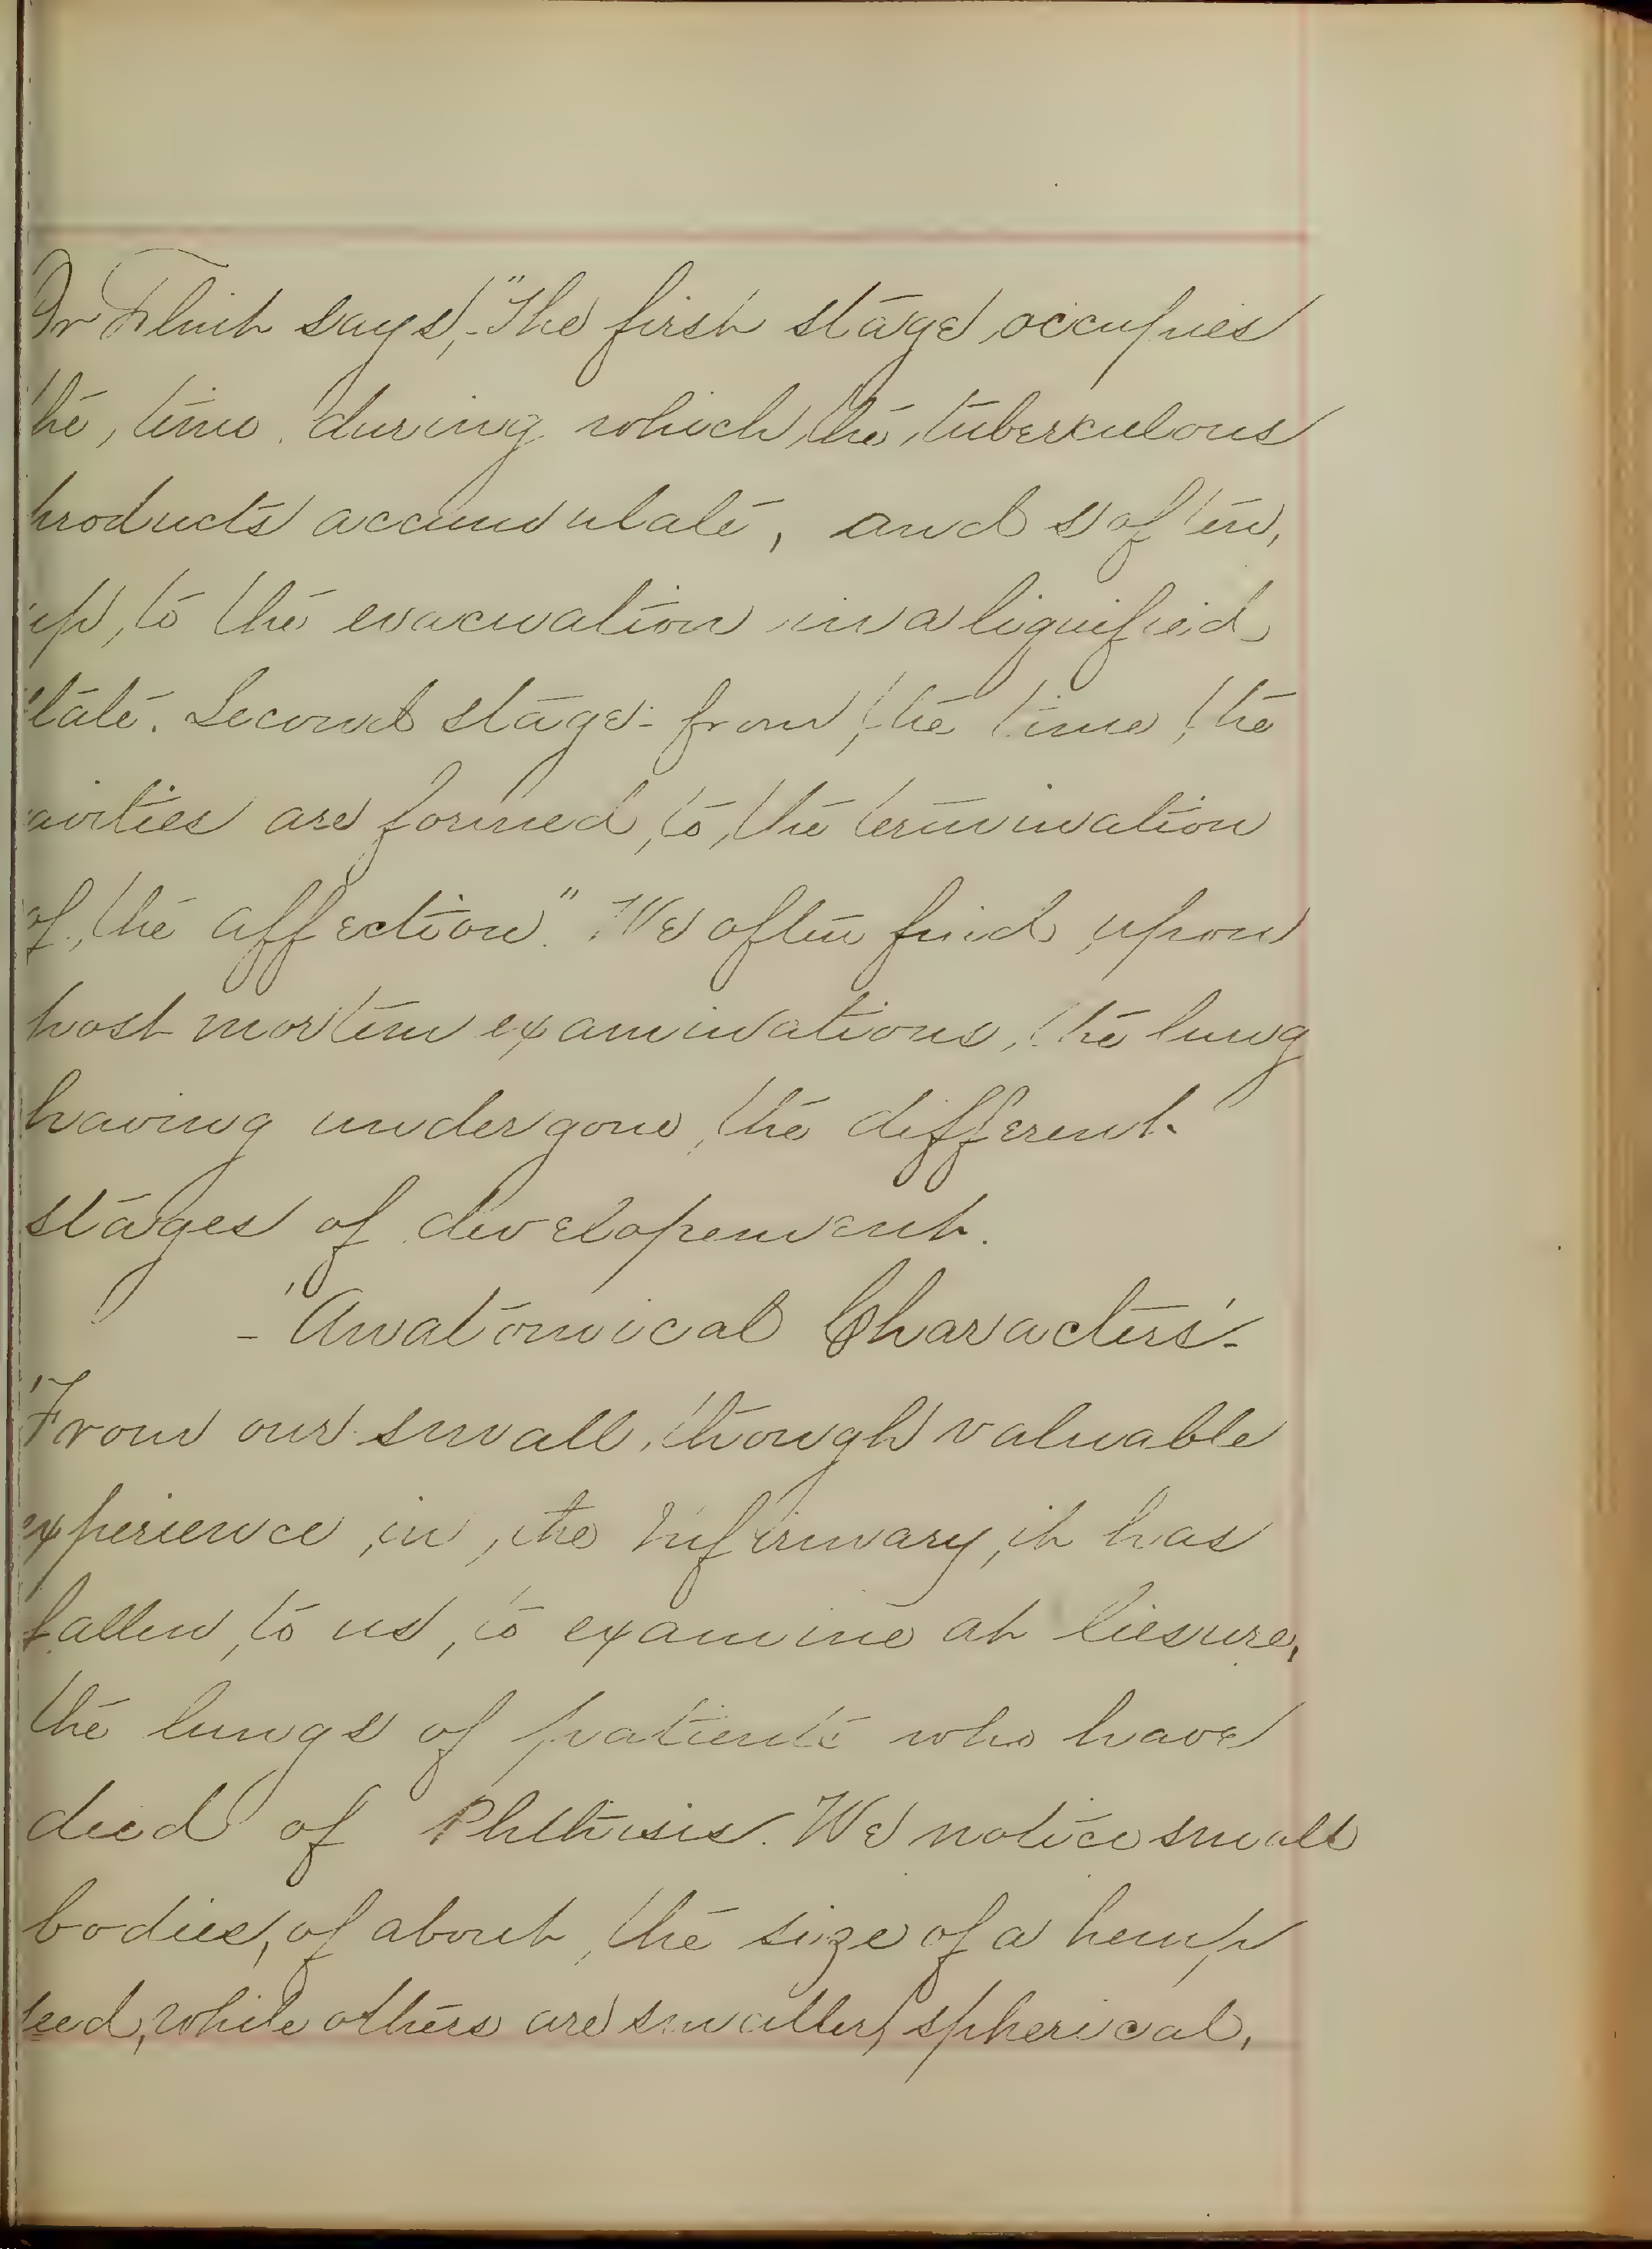 Dr Flint says, "The first stage occupies
the, time during which the, tuberculous
products accumulate, and soften,
up, to the evacuation in a liquified
state. Second stage- from the time the
cavities are formed, to, the termination
of, the affection". We often find upon
post mortem examinations, the lung
having undergone, the different
stages of developement.
- "Anatomical Characters"-
"From our small, though valuable
experience, in, the Infirmary, it has
fallen, to us, to examine at liesure,
the lungs of patients who have
died of Phthisis. We notice small
bodies, of about, the size of a hemp
seed, while others are smaller, spherical,